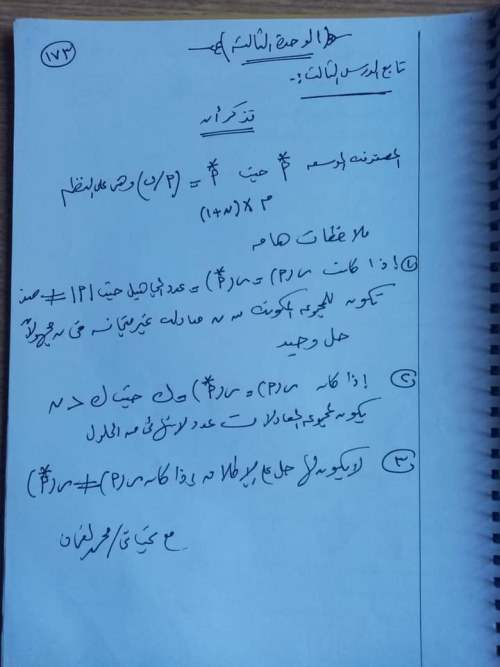 ١٧٣
(الوحدة الثالثة)
تابع الدرس الثالث :-
تذكر أن
المصفوفة الموسعة *P حيث *P = (P/ن) وهى على النظم
م × (ن+١)
ملاحظات هامه
١) إذا كانت س(P) = س(*P) = عدد المجاهيل حيث |P| ≠ صفر
تكون للمجموعة المكونة من ن معادلة غير متجانسه فى ن مجهولاً
حل وحيد
٢) إذا كان س(P) = س(*P) = ك حيث ك < ن
يكون لمجموعة المعادلات عدد لا نهائى من الحلول
٣) لا يكون لها حل على الإطلاق إذا كان س(P) ≠ س(*P)
مع تحياتى / محمد